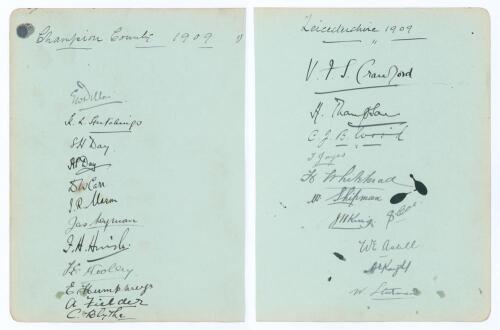 Champion County 1909
EW Dillon
K. L. Hutchings
S H Day
A P Day
D W Carr
J. R. Mason
Jas Seymour
F. H. Huish
E. Humphreys
A Fielder
C. Blythe
Leicestershire 1909
V F S Crawford
A. Thompson
C J B Wood
T Jayes
H Whitehead
W Shipman
J H King
W E Astill
A E Knight
W